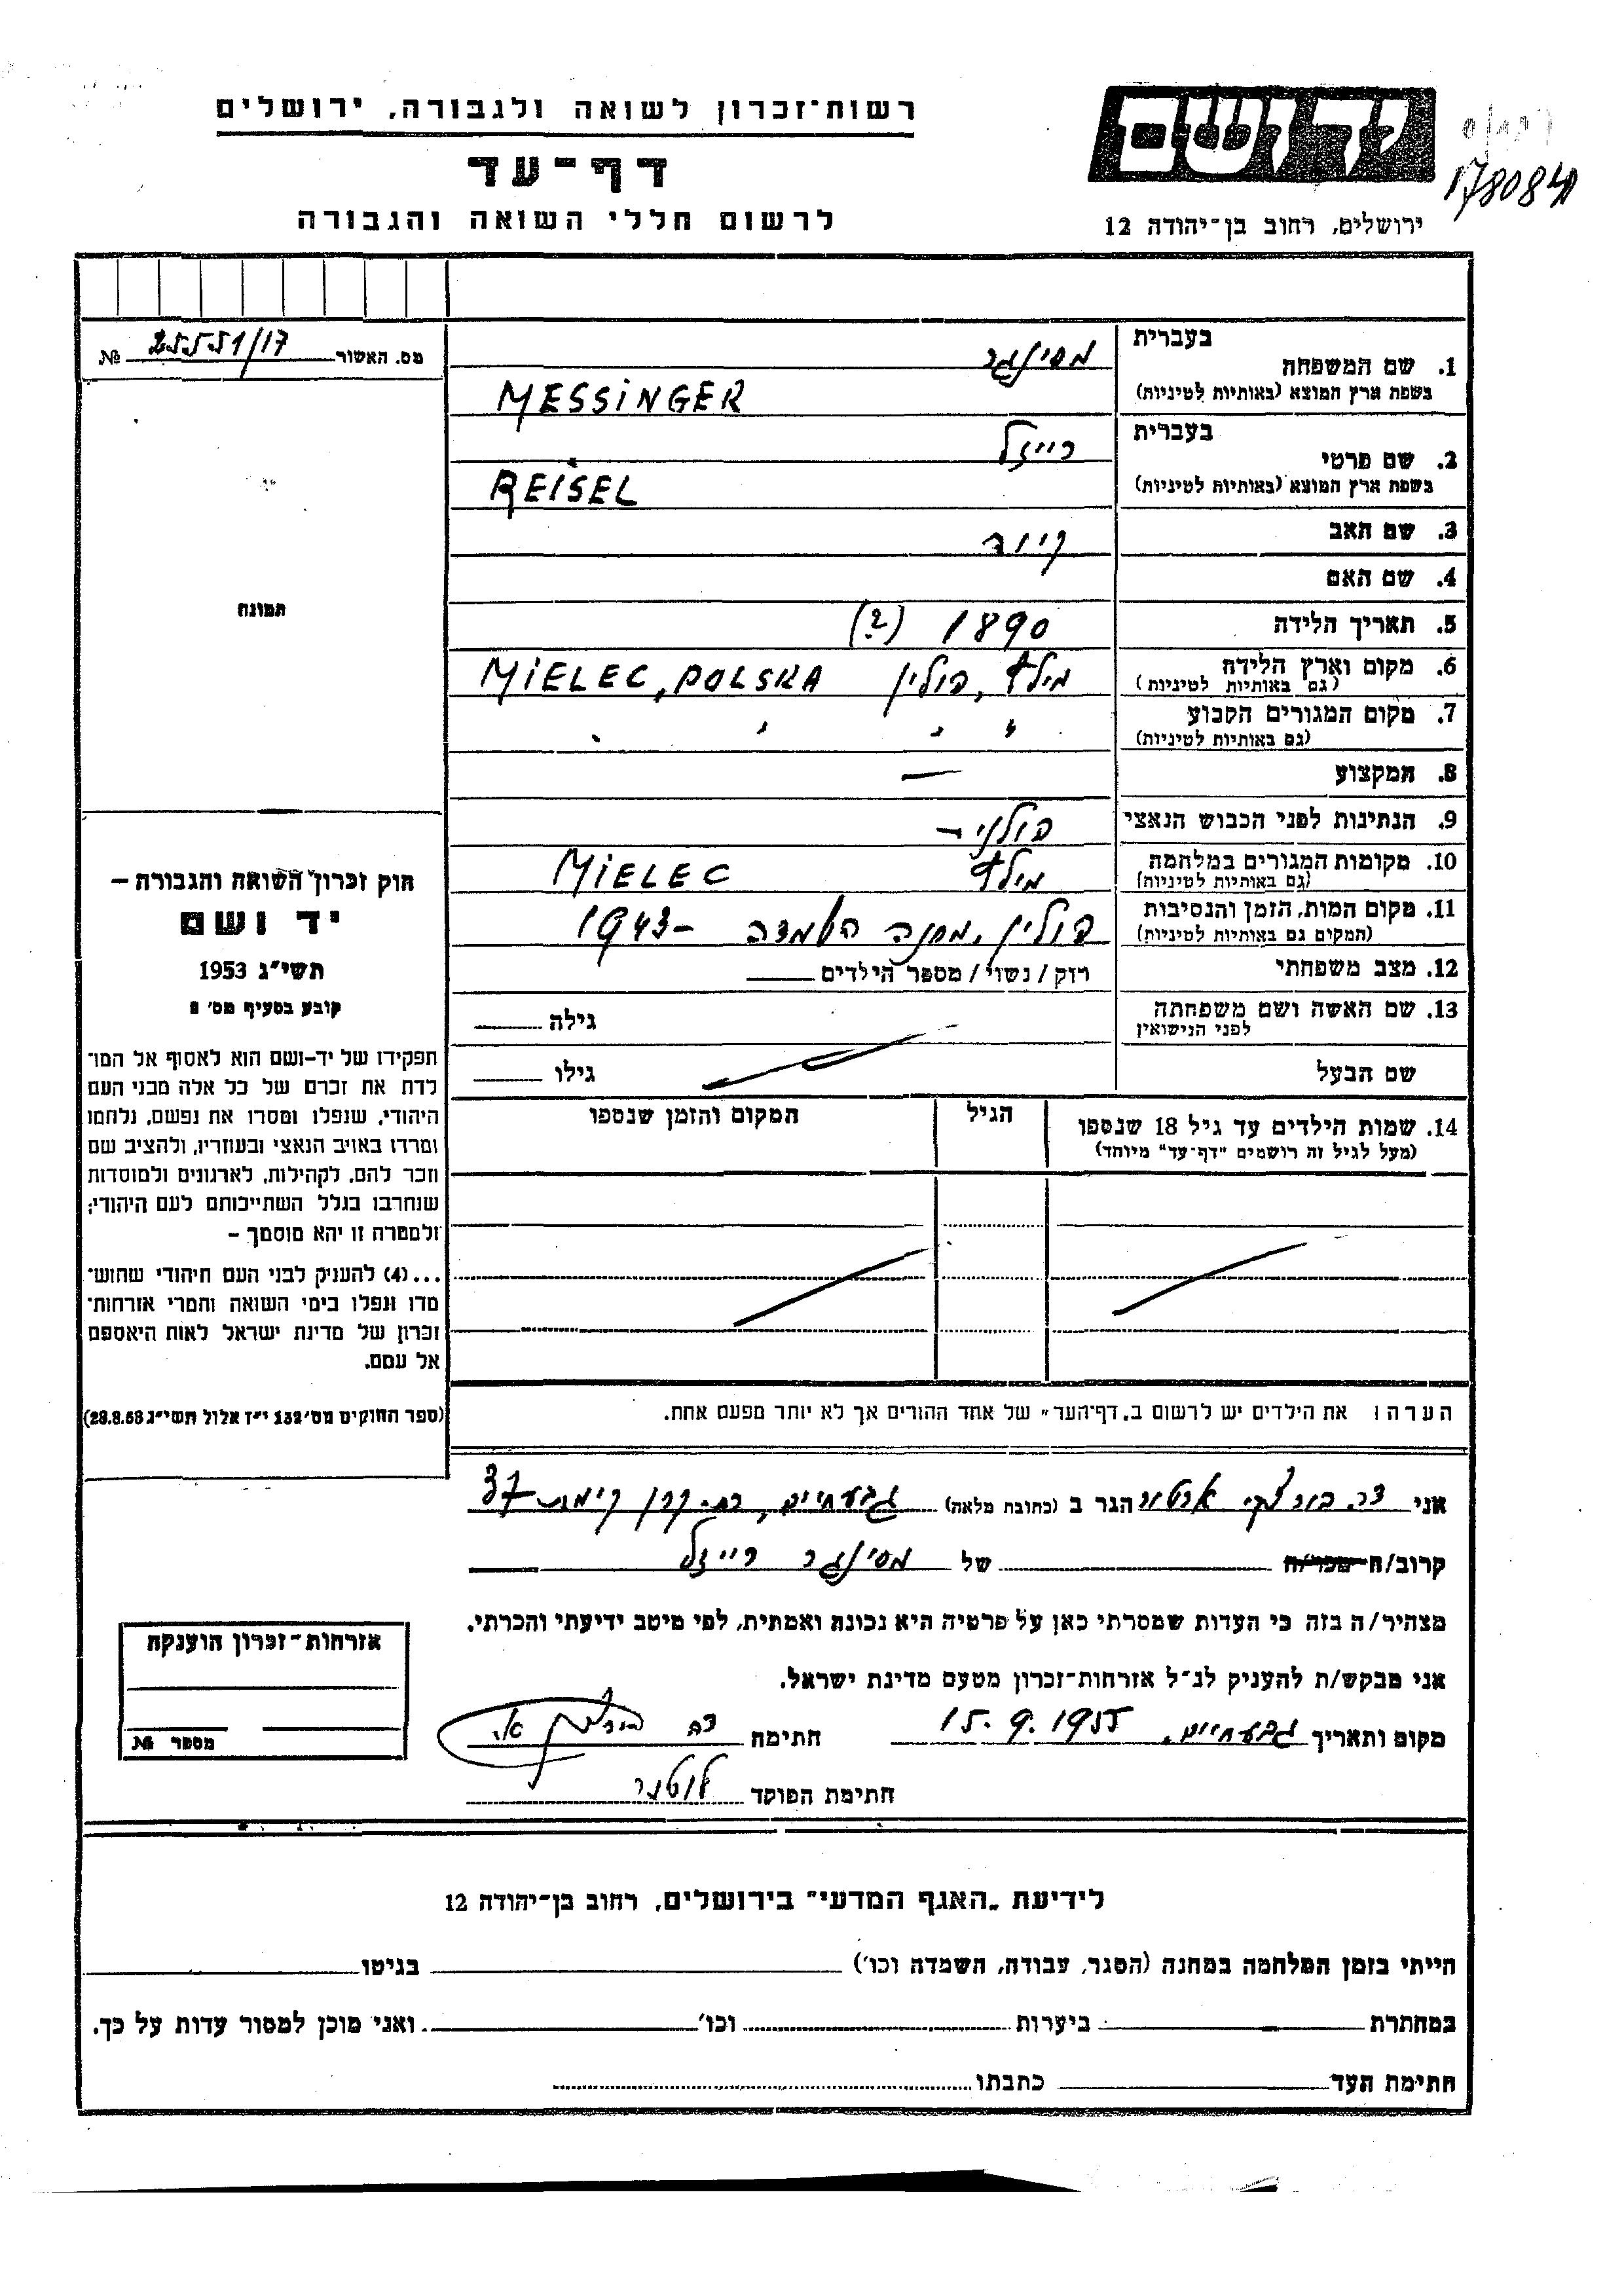 רשות־זכרון לשואה ולגבורה, ירושלים
דף־עד
לרשום חללי השואה והגבורה
יד ושם
178084
ירושלים, רחוב בן־יהודה 12
מס. האשור № 25551/17
1. שם המשפחה
בעברית
מסינגר
בשפת ארץ המוצא (באותיות לטיניות)
MESSINGER
2. שם פרטי
בעברית
רייזל
בשפת ארץ המוצא (באותיות לטיניות)
REISEL
3. שם האב
4. שם האם
5. תאריך הלידה 1890 (?)
6. מקום וארץ הלידה מילץ, פולין MIELEC, POLSKA
(גם באותיות לטיניות)
7. מקום המגורים הקבוע " " " "
(גם באותיות לטיניות)
8. המקצוע —
9. הנתינות לפני הכבוש הנאצי פולני -
10. מקומות המגורים במלחמה מילץ MIELEC
(גם באותיות לטיניות)
11. מקום המות, הזמן והנסיבות פולין, מחנה השמדה - 1943
(המקום גם באותיות לטיניות)
12. מצב משפחתי רוק / נשוי / מספר הילדים
13. שם האשה ושם משפחתה לפני הנישואין
גילה
שם הבעל
גילו
14. שמות הילדים עד גיל 18 שנספו
(מעל לגיל זה רושמים "דף־עד" מיוחד)
הגיל
המקום והזמן שנספו
הערה: את הילדים יש לרשום ב„דף־העד" של אחד ההורים אך לא יותר מפעם אחת.
תמונה
חוק זכרון השואה והגבורה –
יד ושם
תשי"ג 1953
קובע בסעיף מס' 2
תפקידו של יד-ושם הוא לאסוף אל המו־
לדת את זכרם של כל אלה מבני העם
היהודי, שנפלו ומסרו את נפשם, נלחמו
ומרדו באויב הנאצי ובעוזריו, ולהציב שם
וזכר להם, לקהילות, לארגונים ולמוסדות
שנחרבו בגלל השתייכותם לעם היהודי;
ולמטרה זו יהא מוסמך –
...(4) להעניק לבני העם היהודי שהוש־
מדו ונפלו בימי השואה והמרי אזרחות־
זכרון של מדינת ישראל לאות היאספם
אל עמם.
(ספר החוקים מס' 132 י"ז אלול תשי"ג 28.8.53)
אני ארטור הגר ב (כתובת מלאה) גבעתיים, רח. קרן קימת 37
קרוב/ה מכר/ה של מסינגר רייזל
מצהיר/ה בזה כי העדות שמסרתי כאן על פרטיה היא נכונה ואמתית, לפי מיטב ידיעתי והכרתי.
אני מבקש/ת להעניק לנ"ל אזרחות־זכרון מטעם מדינת ישראל.
מקום ותאריך גבעתיים, 15.9.1955 חתימה
חתימת הפוקד
אזרחות־זכרון הוענקה
מספר №
לידיעת „האגף המדעי" בירושלים, רחוב בן־יהודה 12
הייתי בזמן המלחמה במחנה (הסגר, עבודה, השמדה וכו') בגיטו
במחתרת ביערות וכו' ואני מוכן למסור עדות על כך.
חתימת העד כתבתו